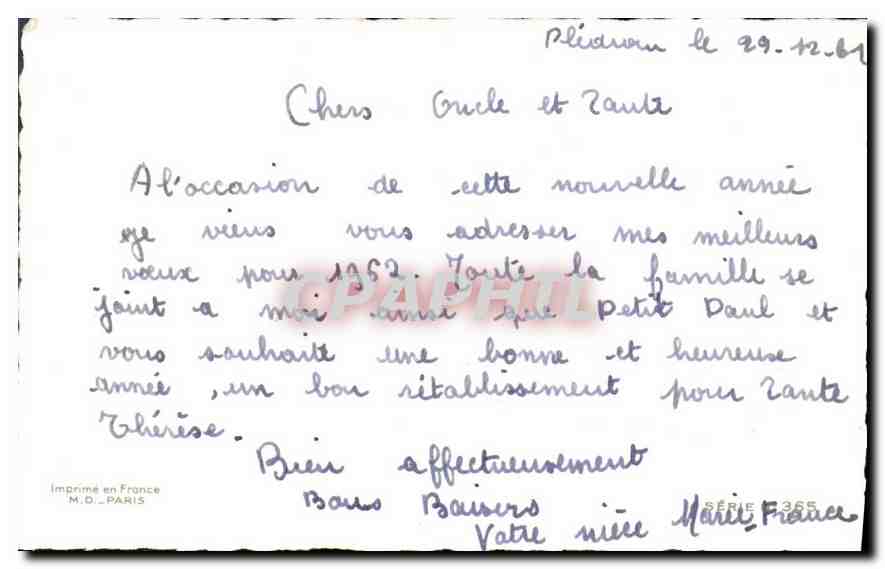 Plédran le 29-12-61
Chers Oncle et Tante
A l'occasion de cette nouvelle année
je viens vous adresser mes meilleurs
vœux pour 1962. Toute la famille se
joint a moi ainsi que Petit Paul et
vous souhaite une bonne et heureuse
année, un bon rétablissement pour Tante
Thérèse.
Bien affectueusement
Bons Baisers
Votre nièce Marie-France
Imprimé en France
M.D. - PARIS
SÉRIE 365
CPAPHIL